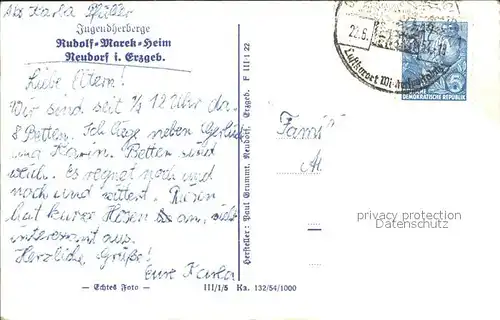 Abs Karla Müller
Jugendherberge
Rudolf-Marek-Heim
Neudorf i. Erzgeb.
Liebe Eltern!
Wir sind seit 1/2 12 Uhr da.
8 Betten. Ich liege neben
und Karin. Betten sind
weich. Es regnet noch und
noch und
hat kurze Hosen an, sieht
interessant aus.
Herzliche Grüße!
Eure Karla
— Echtes Foto —
III/1/5 Ka. 132/54/1000
Hersteller: Paul Grummt, Neudorf, Erzgeb. F III 1 22
Luftkurort
DEMOKRATISCHE REPUBLIK
Fami
privacy protection
Datenschutz